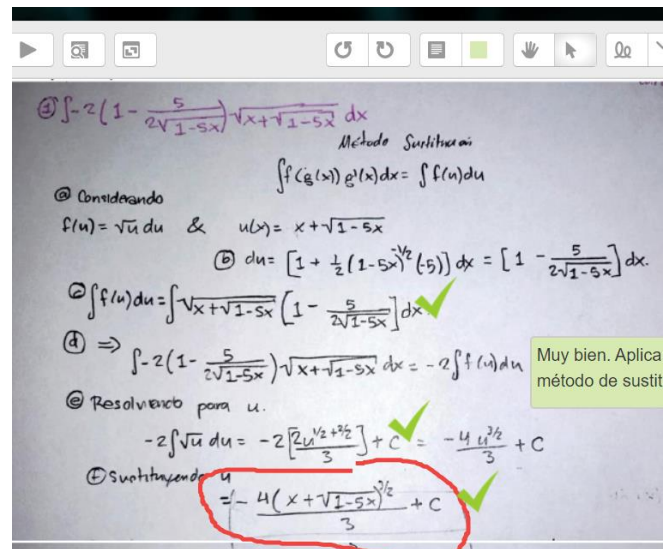 ① ∫-2(1 - 5/(2√(1-5x)))√(x+√(1-5x)) dx
Método Sustitución
∫f(g(x)) g'(x)dx = ∫f(u)du
ⓐ Considerando
f(u) = √u du & u(x) = x+√(1-5x)
ⓑ du = [1 + 1/2(1-5x)^(-1/2)(-5)] dx = [1 - 5/(2√(1-5x))] dx.
ⓒ ∫f(u)du = ∫√(x+√(1-5x)) [1 - 5/(2√(1-5x))] dx
ⓓ ⇒
∫-2(1 - 5/(2√(1-5x)))√(x+√(1-5x)) dx = -2∫f(u)du
Muy bien. Aplica
método de sustit
ⓔ Resolviendo para u.
-2∫√u du = -2[2u^(1/2+2/2)/3] + C = -4u^(3/2)/3 + C
ⓕ Sustituyendo u
= -4(x+√(1-5x))^(3/2)/3 + C